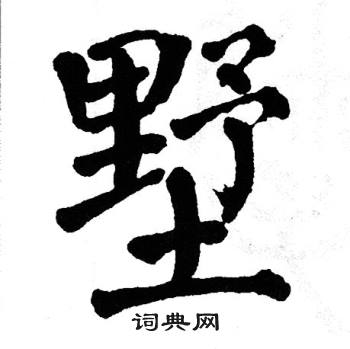 墅
词典网